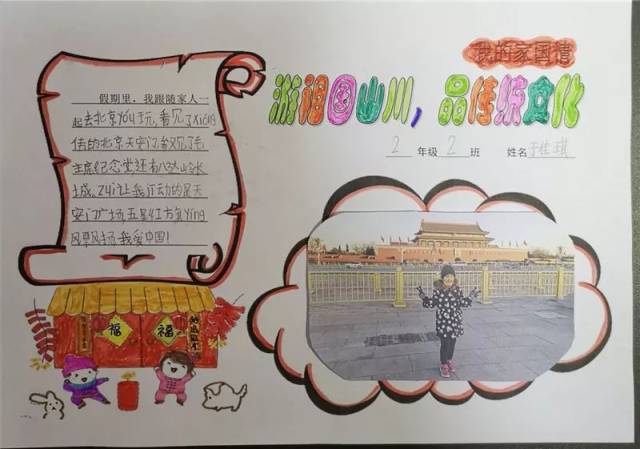 我的家国情
游祖国山川，品传统文化
2 年级 2 班 姓名 于佳琪
假期里，我跟随家人一
起去北京yóu玩，看见了xióng
伟的北京天安门，参观了毛
主席纪念堂还有八达岭长
城。zuì让我行动的是天
安门广场五星红旗yíng
风飘扬，我爱中国！
福
福